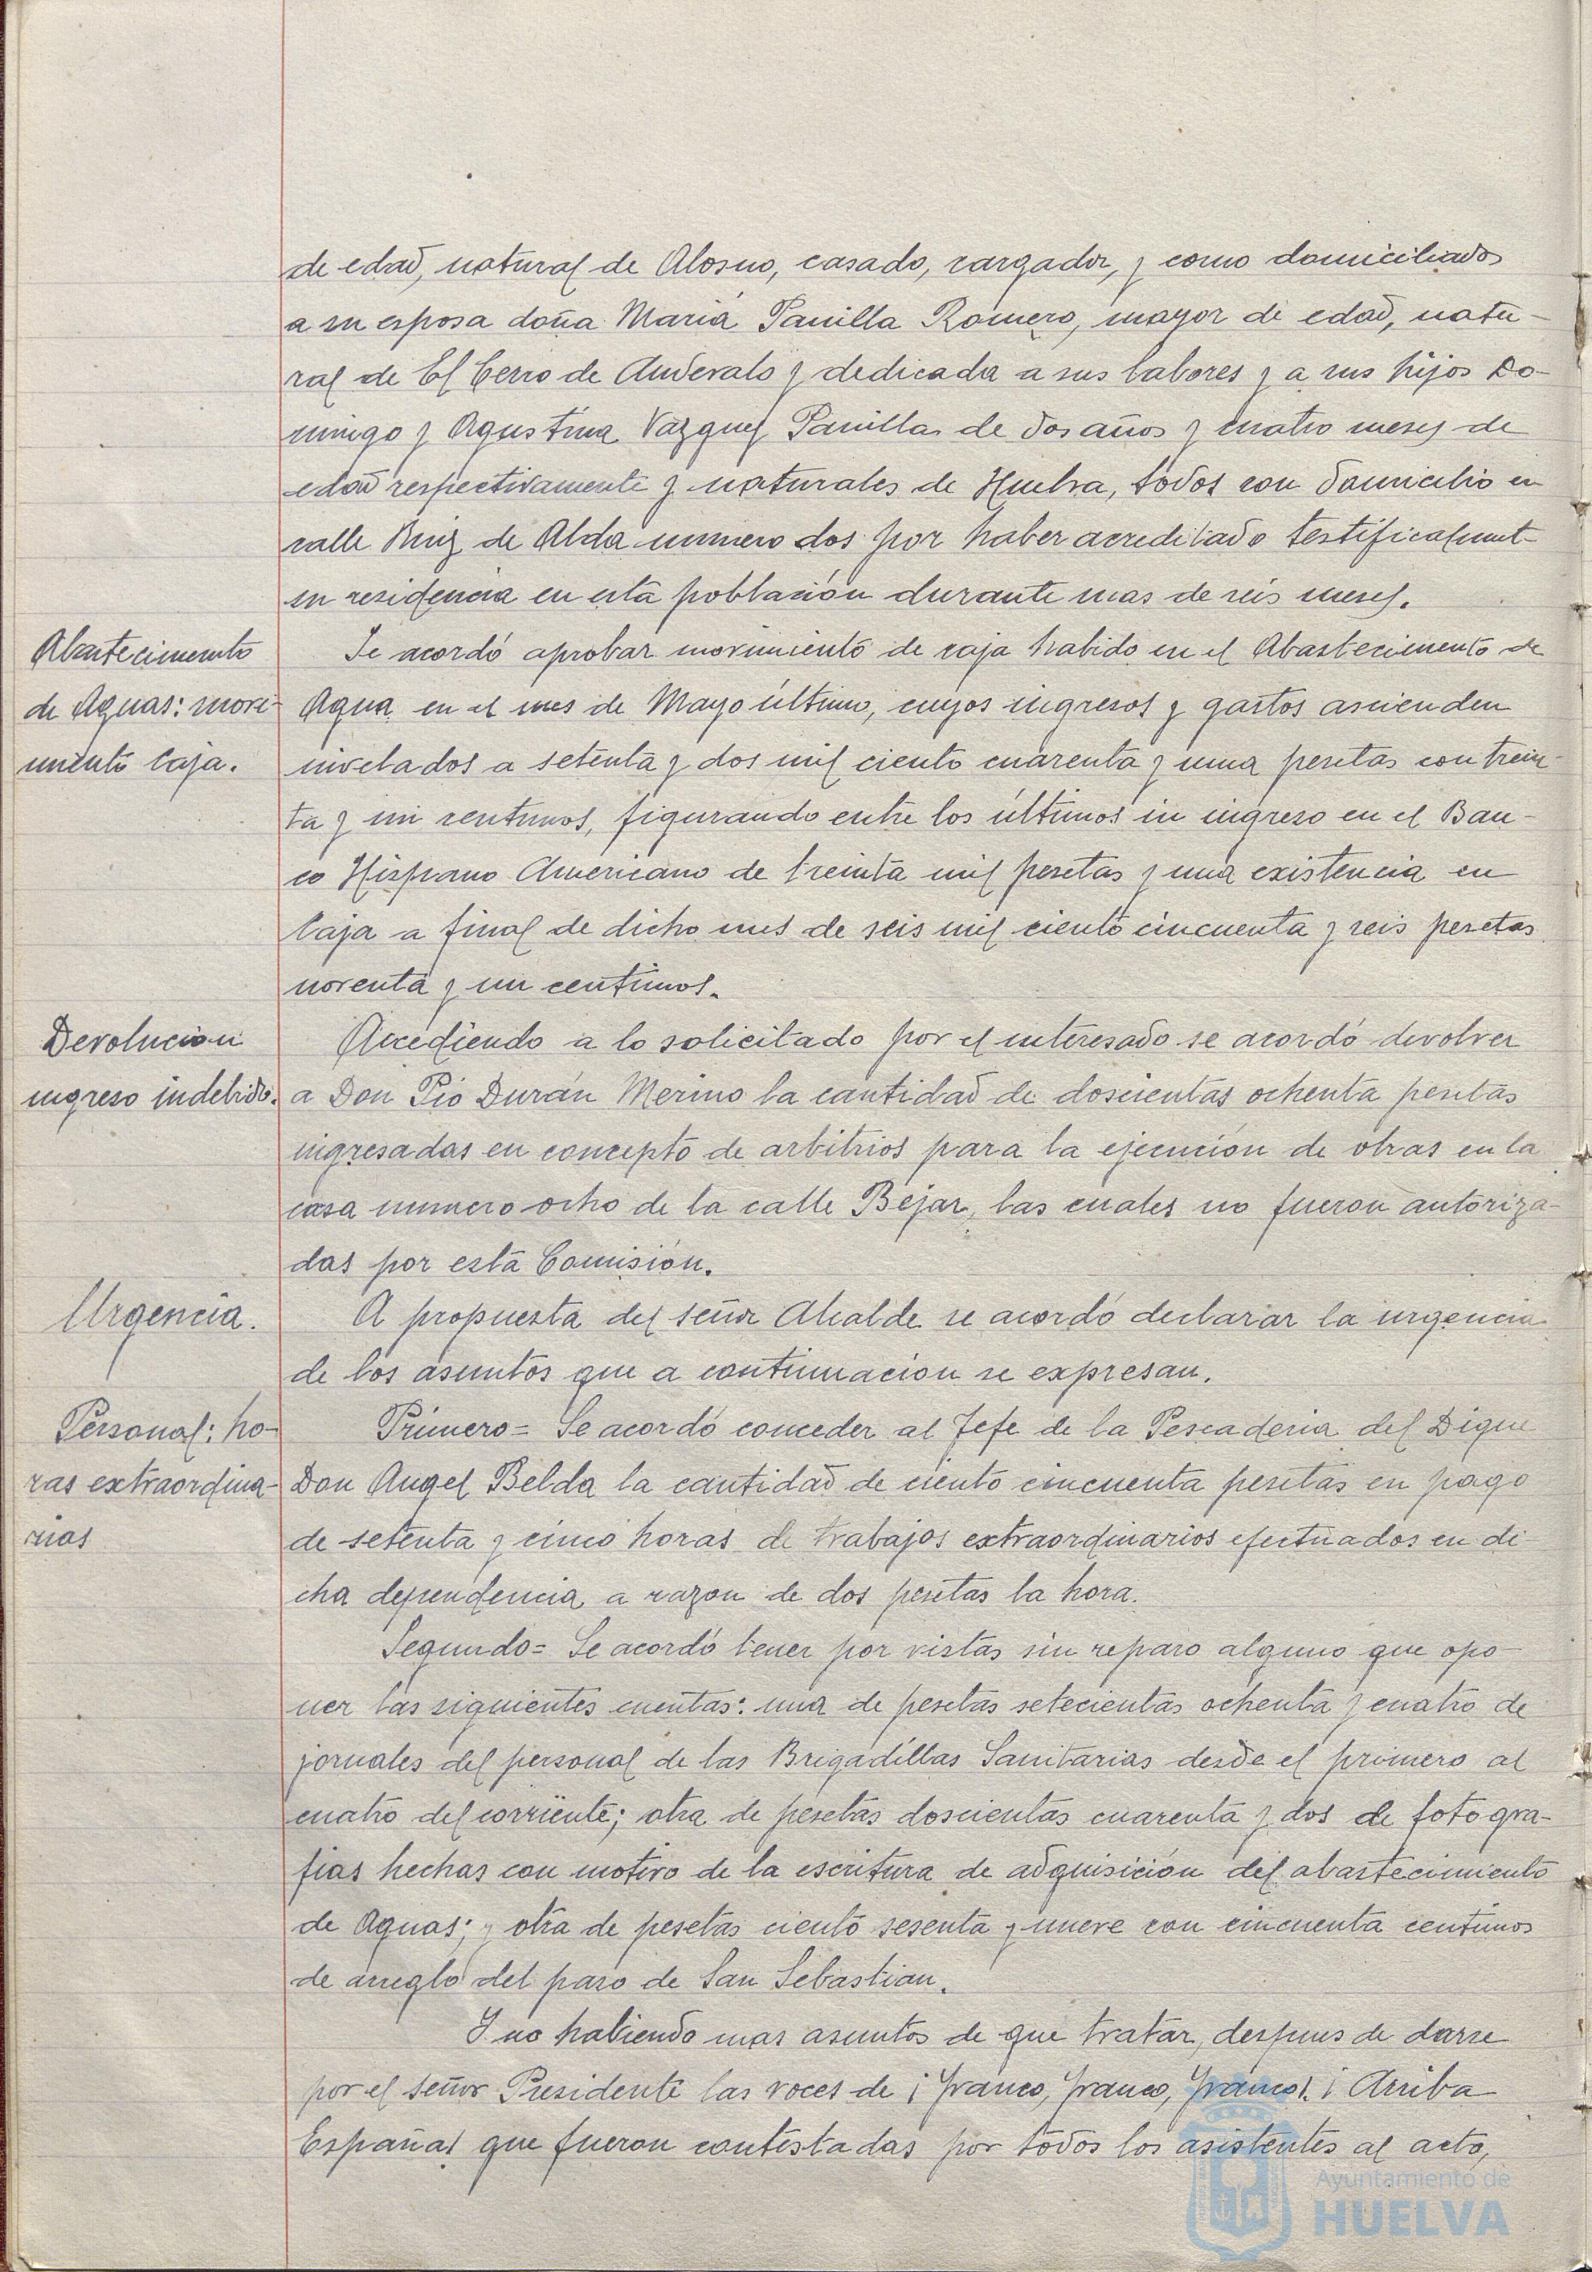 de edad, natural de Alosno, casado, cargador, y como domiciliados
a su esposa doña Maria Panilla Romero, mayor de edad, natu-
ral de El Cerro de Andevalo y dedicada a sus labores y a sus hijos Do-
mingo y Agustina Vazquez Panilla de dos años y cuatro meses de
edad respectivamente y naturales de Huelva, todos con domicilio en
calle Ruiz de Alda numero dos por haber acreditado testificalment
su residencia en esta población durante mas de seis meses.
Abastecimiento
de Aguas: movi-
miento Caja.
Se acordó aprobar movimiento de caja habido en el Abastecimiento de
Agua en el mes de Mayo último, cuyos ingresos y gastos ascienden
nivelados a setenta y dos mil ciento cuarenta y una pesetas con trein-
ta y un centimos, figurando entre los últimos un ingreso en el Ban-
co Hispano Americano de treinta mil pesetas y una existencia en
Caja a final de dicho mes de seis mil ciento cincuenta y seis pesetas
noventa y un centimos.
Devolucion
ingreso indebido.
Accediendo a lo solicitado por el interesado se acordó devolver
a Don Pio Durán Merino la cantidad de doscientas ochenta pesetas
ingresadas en concepto de arbitrios para la ejecución de obras en la
casa numero ocho de la calle Bejar, las cuales no fueron autoriza-
das por esta Comisión.
Urgencia.
A propuesta del señor Alcalde se acordó declarar la urgencia
de los asuntos que a continuacion se expresan.
Personal: ho-
ras extraordina-
rias
Primero= Se acordó conceder al Jefe de la Pescaderia del Dique
Don Angel Belda la cantidad de ciento cincuenta pesetas en pago
de setenta y cinco horas de trabajos extraordinarios efectuados en di-
cha dependencia a razon de dos pesetas la hora.
Segundo= Se acordó tener por vistas sin reparo alguno que opo-
ner las siguientes cuentas: una de pesetas setecientas ochenta y cuatro de
jornales del personal de las Brigadillas Sanitarias desde el primero al
cuatro del corriente; otra de pesetas doscientas cuarenta y dos de fotogra-
fias hechas con motivo de la escritura de adquisición del abastecimiento
de Aguas; y otra de pesetas ciento sesenta y nueve con cincuenta centimos
de arreglo del paso de San Sebastian.
Y no habiendo mas asuntos de que tratar, despues de darse
por el señor Presidente las voces de ¡Franco, Franco, Franco!. ¡Arriba
España! que fueron contestadas por todos los asistentes al acto,
Ayuntamiento de
HUELVA